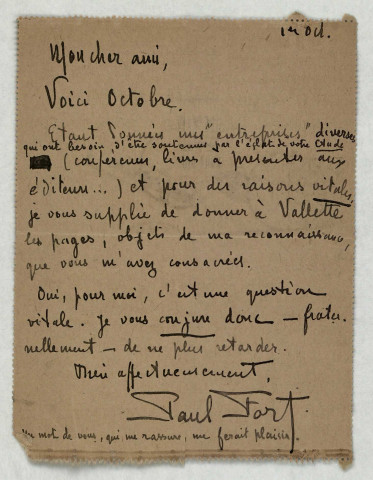 1er Oct.
Mon cher ami,
Voici Octobre.
Etant données mes "entreprises" diverses
qui ont besoin d'être soutenues par l'éclat de votre Etude
(conférences, livres à présenter aux
éditeurs...) et pour des raisons vitales,
je vous supplie de donner à Vallette
les pages, objets de ma reconnaissance,
que vous m'avez consacrées.
Oui, pour moi, c'est une question
vitale. Je vous conjure donc — frater-
nellement — de ne plus retarder.
Mon affectueusement,
Paul Fort.
Un mot de vous, qui me rassure, me ferait plaisir.